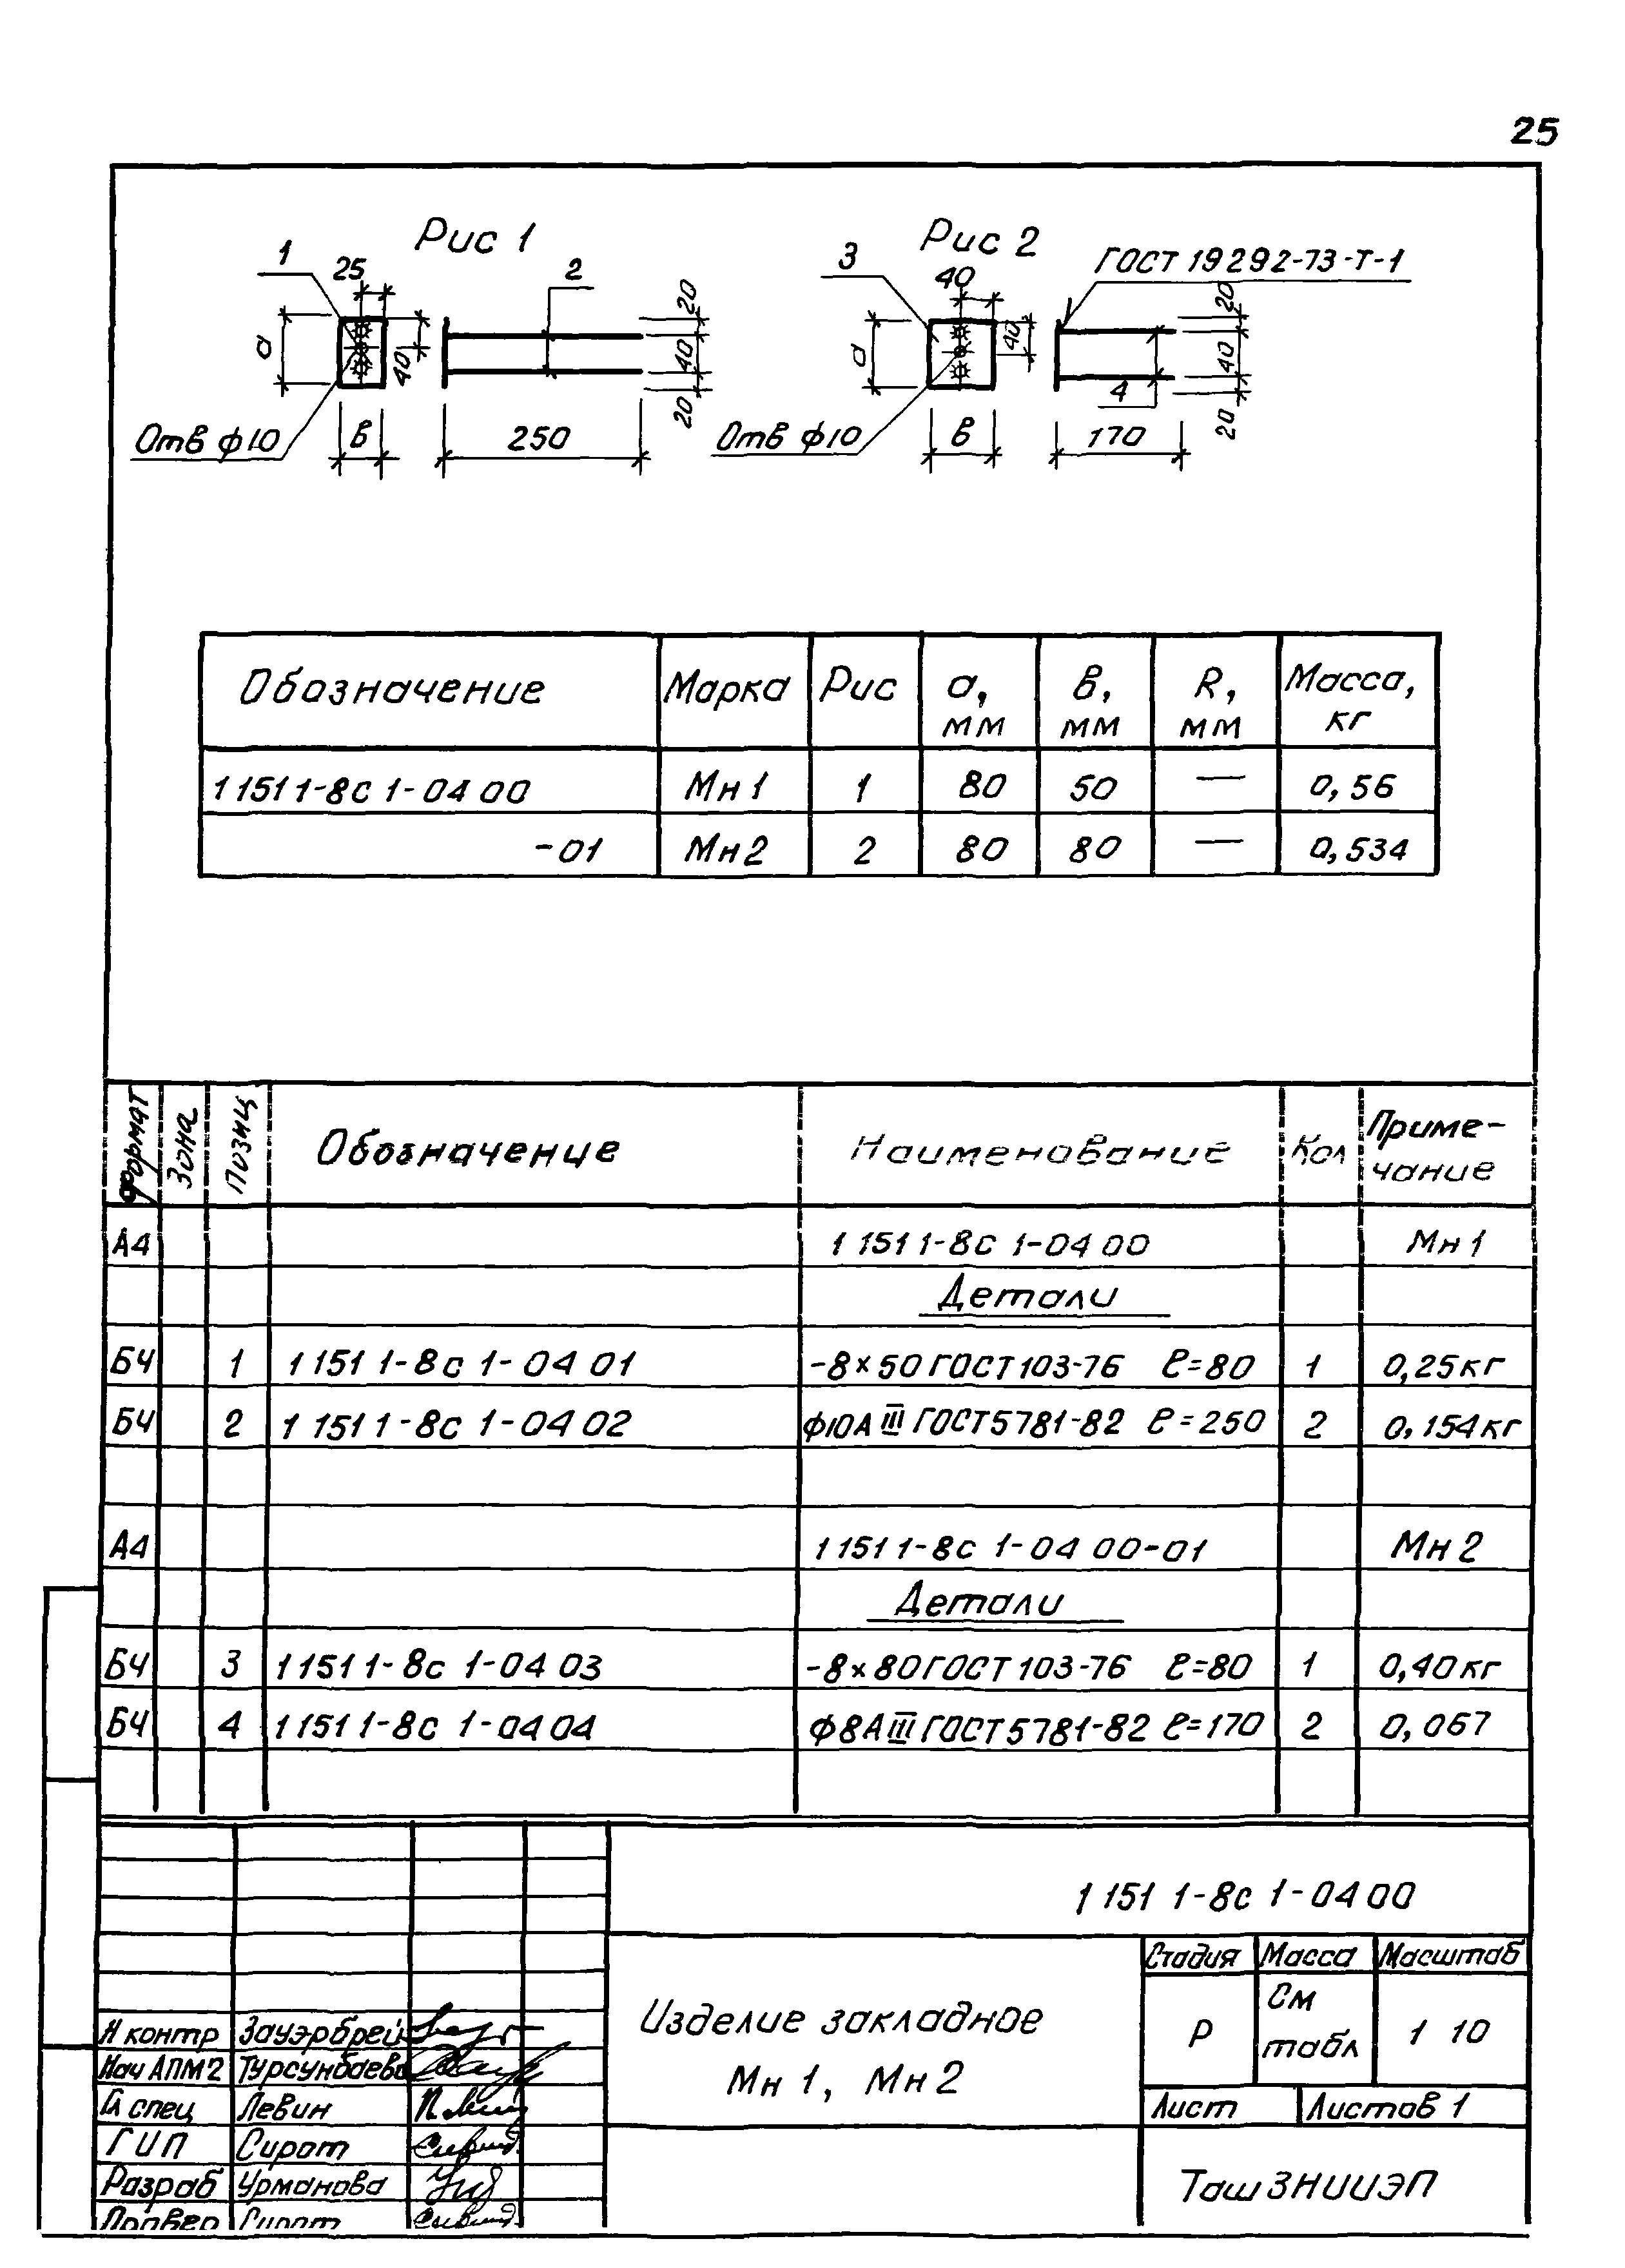 25
Рис 1
1
25
2
20
а
40
40
20
Отв ф10
в
250
Рис 2
3
40
ГОСТ 19292-73-Т-1
20
а
40
40
4
20
Отв ф10
в
170
Обозначение Марка Рис а, мм в, мм R, мм Масса, кг
1 151 1-8с 1-04 00 Мн 1 1 80 50 — 0,56
-01 Мн 2 2 80 80 — 0,534
Формат Зона Позиц Обозначение Наименование Кол Приме-чание
А4 1 151 1-8с 1-04 00 Мн 1
Детали
БЧ 1 1 151 1-8с 1-04 01 -8×50 ГОСТ 103-76 ℓ=80 1 0,25кг
БЧ 2 1 151 1-8с 1-04 02 ф10АIII ГОСТ 5781-82 ℓ=250 2 0,154кг
А4 1 151 1-8с 1-04 00-01 Мн 2
Детали
БЧ 3 1 151 1-8с 1-04 03 -8×80 ГОСТ 103-76 ℓ=80 1 0,40кг
БЧ 4 1 151 1-8с 1-04 04 ф8АIII ГОСТ 5781-82 ℓ=170 2 0,067
1 151 1-8с 1-04 00
Изделие закладное
Мн 1, Мн 2
Стадия Масса Масштаб
Р См табл 1 10
Лист Листов 1
ТашЗНИИЭП
Н контр Зауэрбрей
Нач АПМ2 Турсунбаева
Гл спец Левин
ГИП Сирот
Разраб Урманова
Провер Сирот